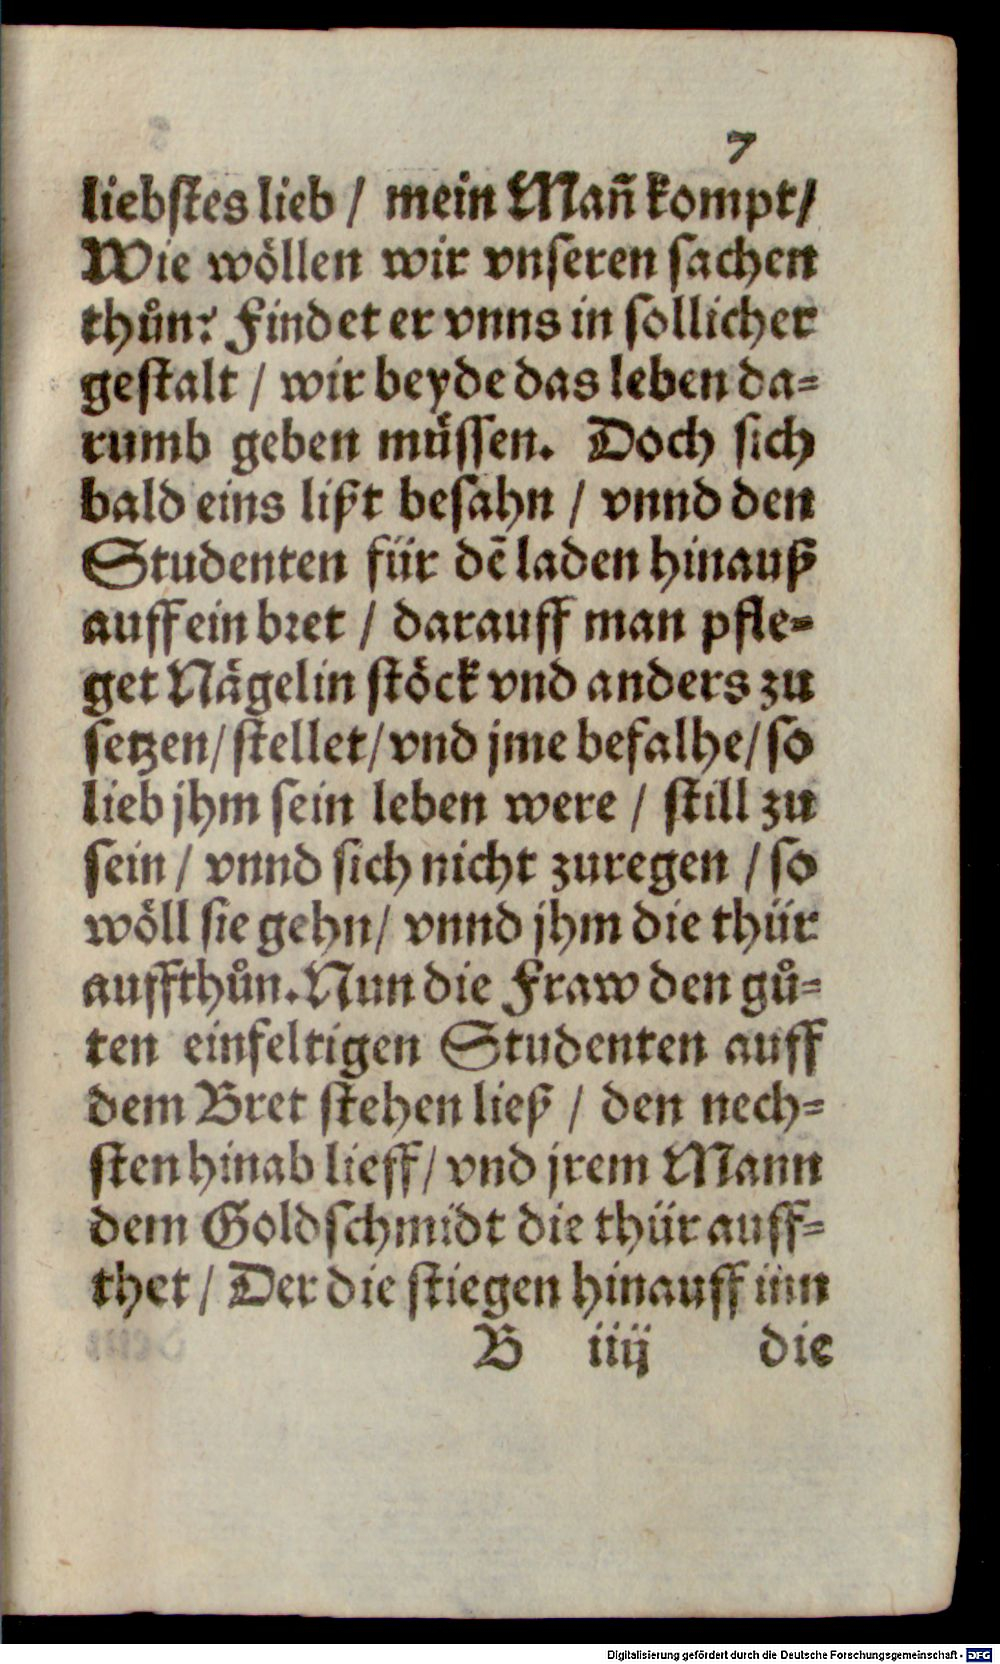 7
liebstes lieb / mein Mañ kompt /
Wie wöllen wir vnseren sachen
thůn? Findet er vnns in sollicher
gestalt / wir beyde das leben da=
rumb geben müssen. Doch sich
bald eins lißt besahn / vnnd den
Studenten für dē laden hinauß
auff ein bret / darauff man pfle=
get Nägelin stöck vnd anders zu
setzen / stellet / vnd jme befalhe / so
lieb jhm sein leben were / still zu
sein / vnnd sich nicht zuregen / so
wöll sie gehn / vnnd jhm die thür
auffthůn. Nun die Fraw den gů=
ten einfeltigen Studenten auff
dem Bret stehen ließ / den nech=
sten hinab lieff / vnd jrem Mann
dem Goldschmidt die thür auff=
thet / Der die stiegen hinauff inn
B iiij die
Digitalisierung gefördert durch die Deutsche Forschungsgemeinschaft - DFG